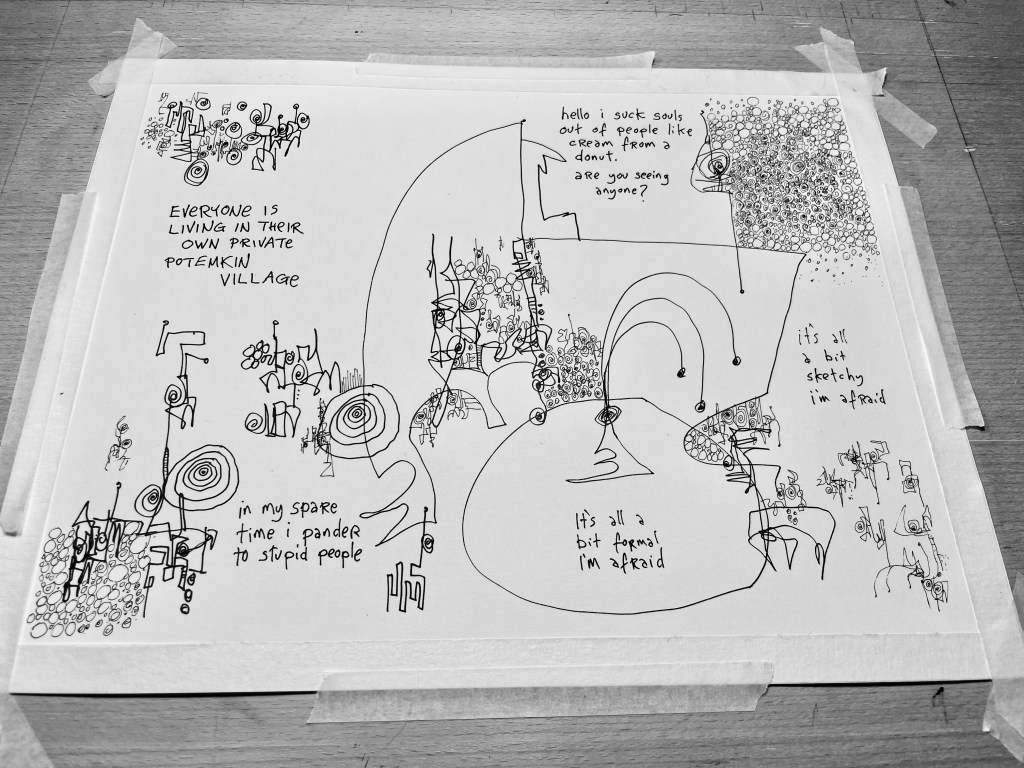 EVERYONE IS
LIVING IN THEIR
OWN PRIVATE
POTEMKIN
VILLAGE
hello i suck souls
out of people like
cream from a
donut.
are you seeing
anyone?
it's all
a bit
sketchy
i'm afraid
in my spare
time i pander
to stupid people
It's all a
bit formal
I'm afraid